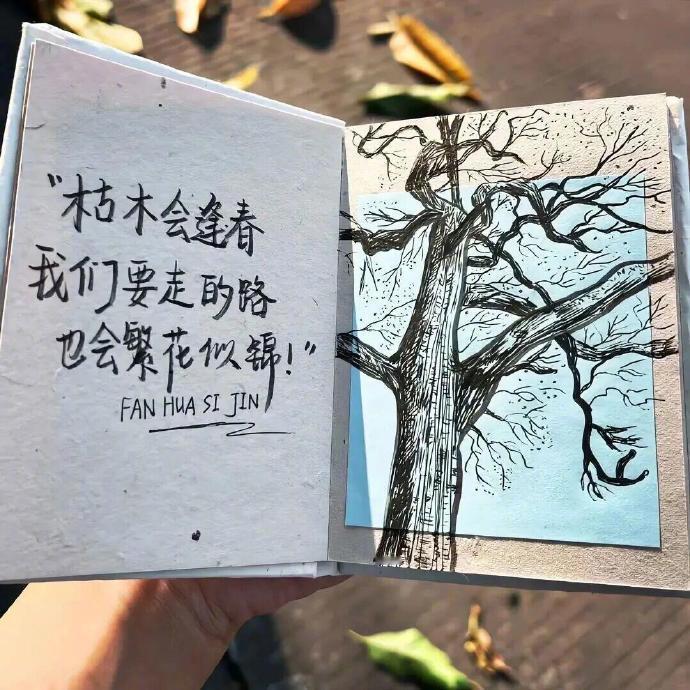 “枯木会逢春
我们要走的路
也会繁花似锦！”
FAN HUA SI JIN